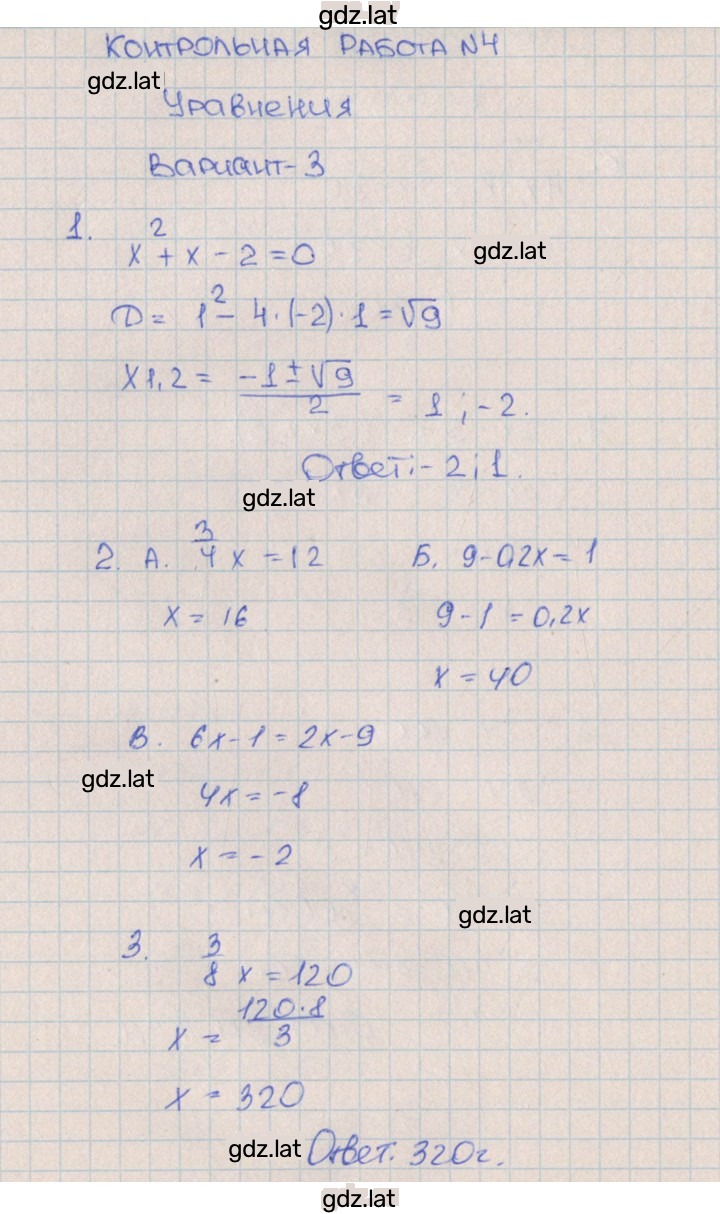 gdz.lat
КОНТРОЛЬНАЯ РАБОТА N4
gdz.lat
Уравнения
Вариант-3
1. x² + x - 2 = 0
gdz.lat
D = 1² - 4·(-2)·1 = √9
X1,2 = (-1±√9)/2 = 1; -2.
Ответ: -2; 1.
gdz.lat
2. А. 3/4 x = 12 Б. 9-0,2x = 1
x = 16 9-1 = 0,2x
x = 40
В. 6x-1 = 2x-9
gdz.lat
4x = -8
x = -2
gdz.lat
3. 3/8 x = 120
x = 120·8/3
x = 320
gdz.lat Ответ. 320г.
gdz.lat